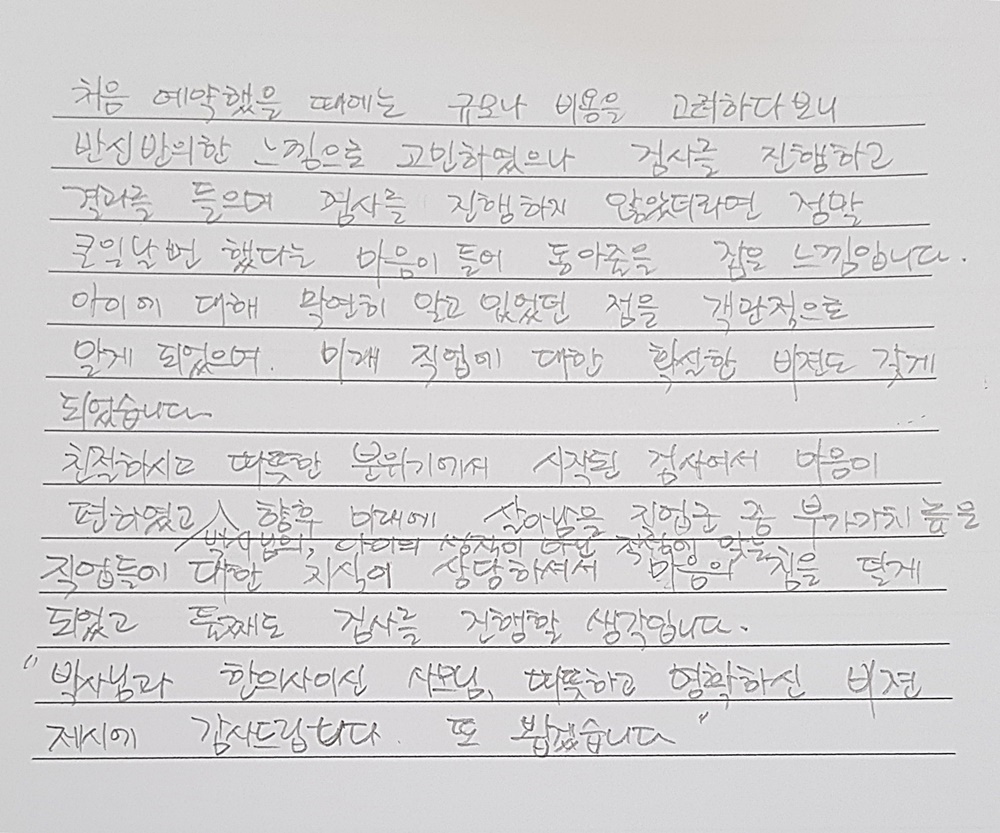 처음 예약했을 때에는 규모나 비용을 고려하다보니
반신반의한 느낌으로 고민하였으나 검사를 진행하고
결과를 들으며 검사를 진행하지 않았더라면 정말
큰일날번 했다는 마음이 들어 동아줄을 잡은 느낌입니다.
아이에 대해 막연히 알고 있었던 점을 객관적으로
알게 되었으며. 미래 직업에 대한 확실한 비젼도 갖게
되었습니다
친절하시고 따뜻한 분위기에서 시작된 검사에서 마음이
편하였고 향후 미래에 살아남을 직업군 중 부가가치 높은
박사님의, 아이의 성적이 아닌 적성에 맞는
직업들에 대한 지식이 상당하셔서 마음의 짐을 덜게
되었고 둘째도 검사를 진행할 생각입니다.
"박사님과 한의사이신 사모님, 따뜻하고 명확하신 비젼
제시에 감사드립니다. 또 뵙겠습니다"